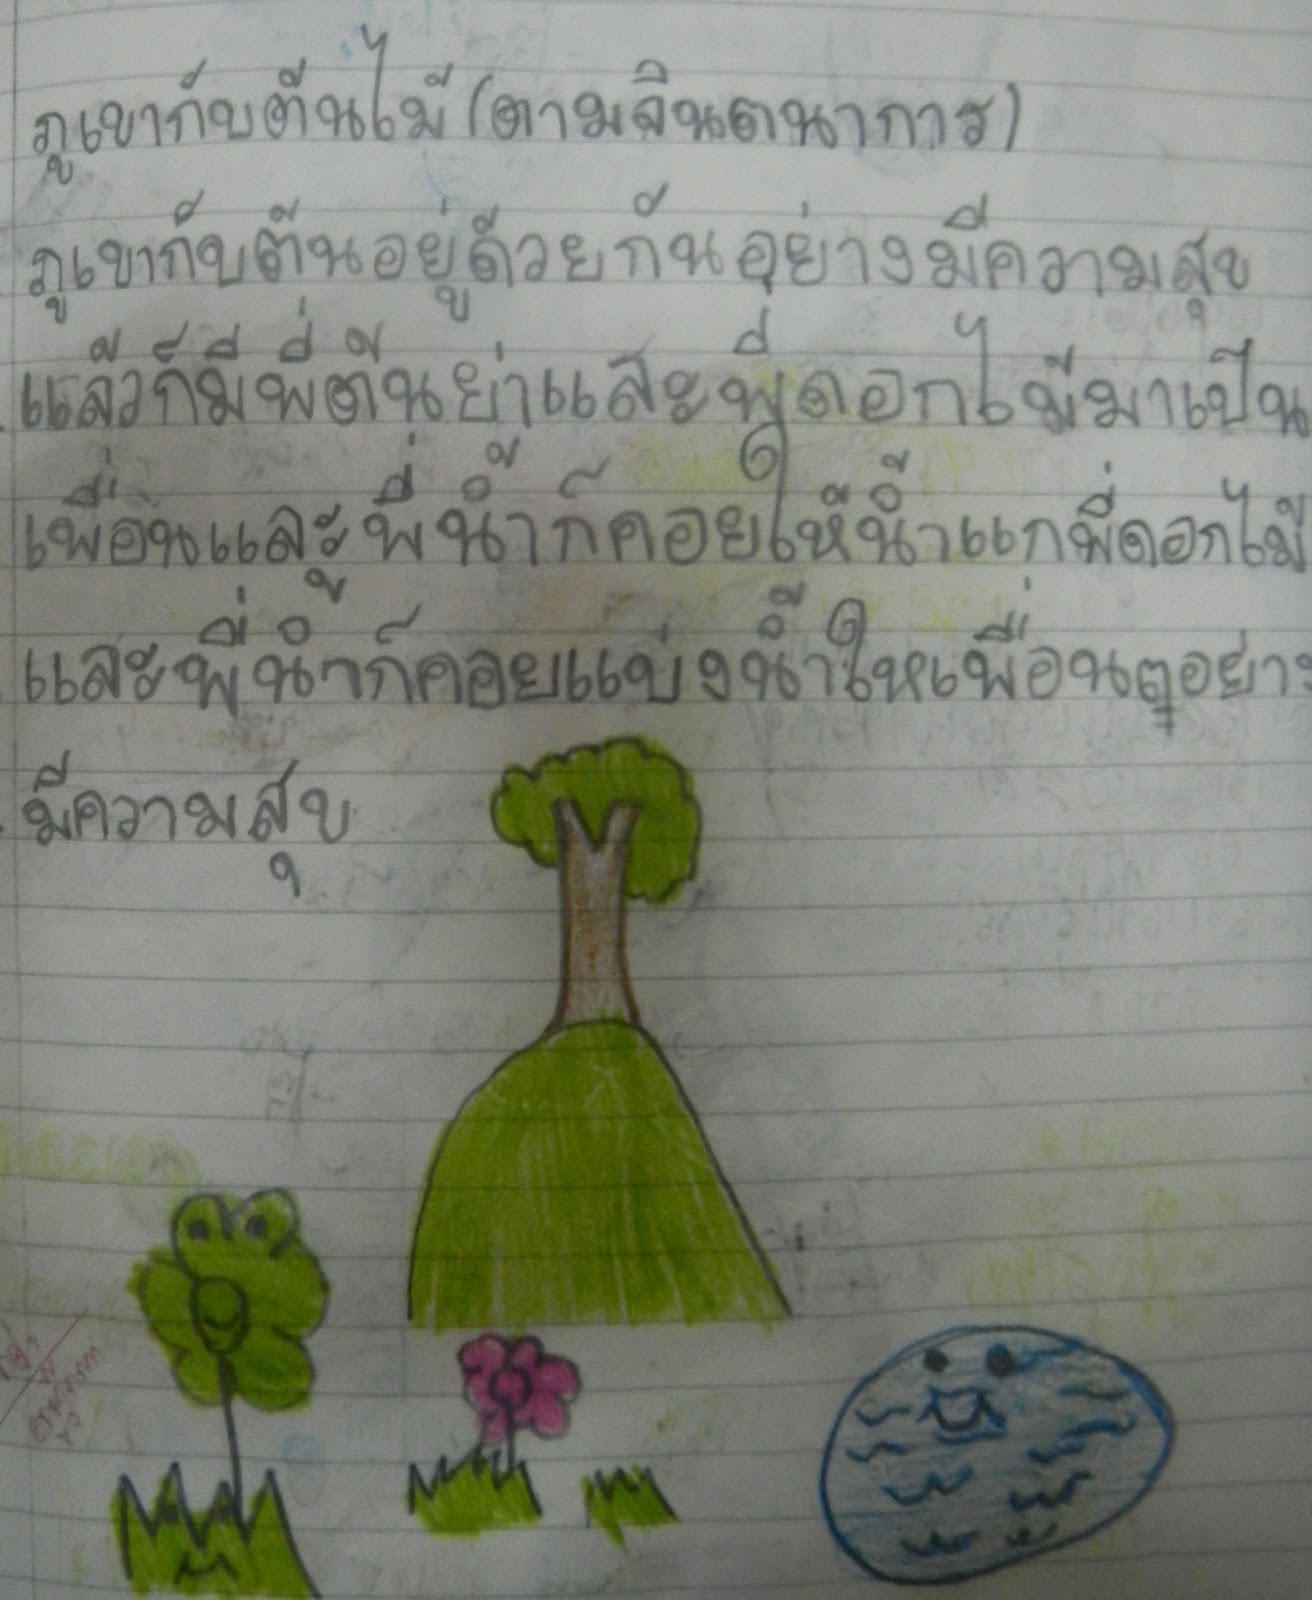 ภูเขากับต้นไม้ (ตามจินตนาการ)
ภูเขากับต้นอยู่ด้วยกันอย่างมีความสุข
แล้วก็มีพี่ต้นย่าและพี่ดอกไม้มาเป็น
เพื่อนและพี่น้ำก็คอยให้น้ำแก่พี่ดอกไม้
และพี่น้ำก็คอยแบ่งน้ำให้เพื่อนๆอย่าง
มีความสุข